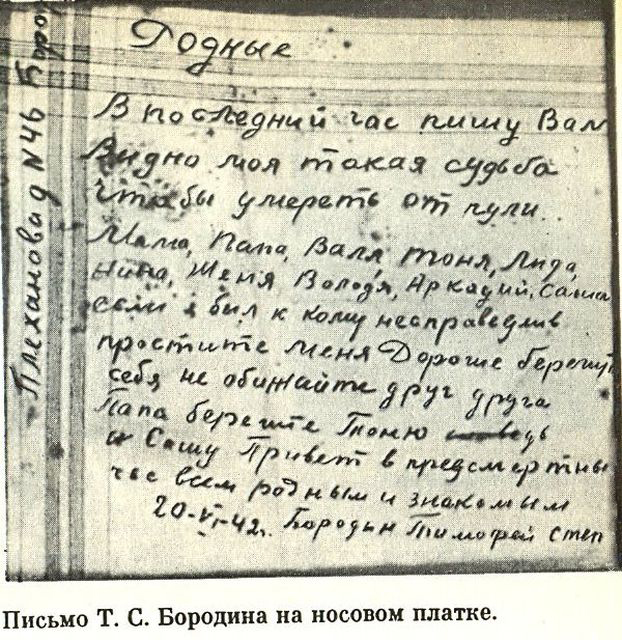 Плехановая д N 46 Боро
Родные
В последний час пишу Вам
Видно моя такая судьба
чтобы умереть от пули..
Мама, Папа, Валя Тоня, Лида,
Нина, Женя Володя, Аркадий, Саша
если я был к кому несправедлив
простите меня Дорогие берегит
себя не обижайте друг друга
Папа берегите Тоню
и Сашу Привет в предсмертны
час всем родным и знакомым
20-VI-42г. Бородин Тимофей Степ
Письмо Т. С. Бородина на носовом платке.